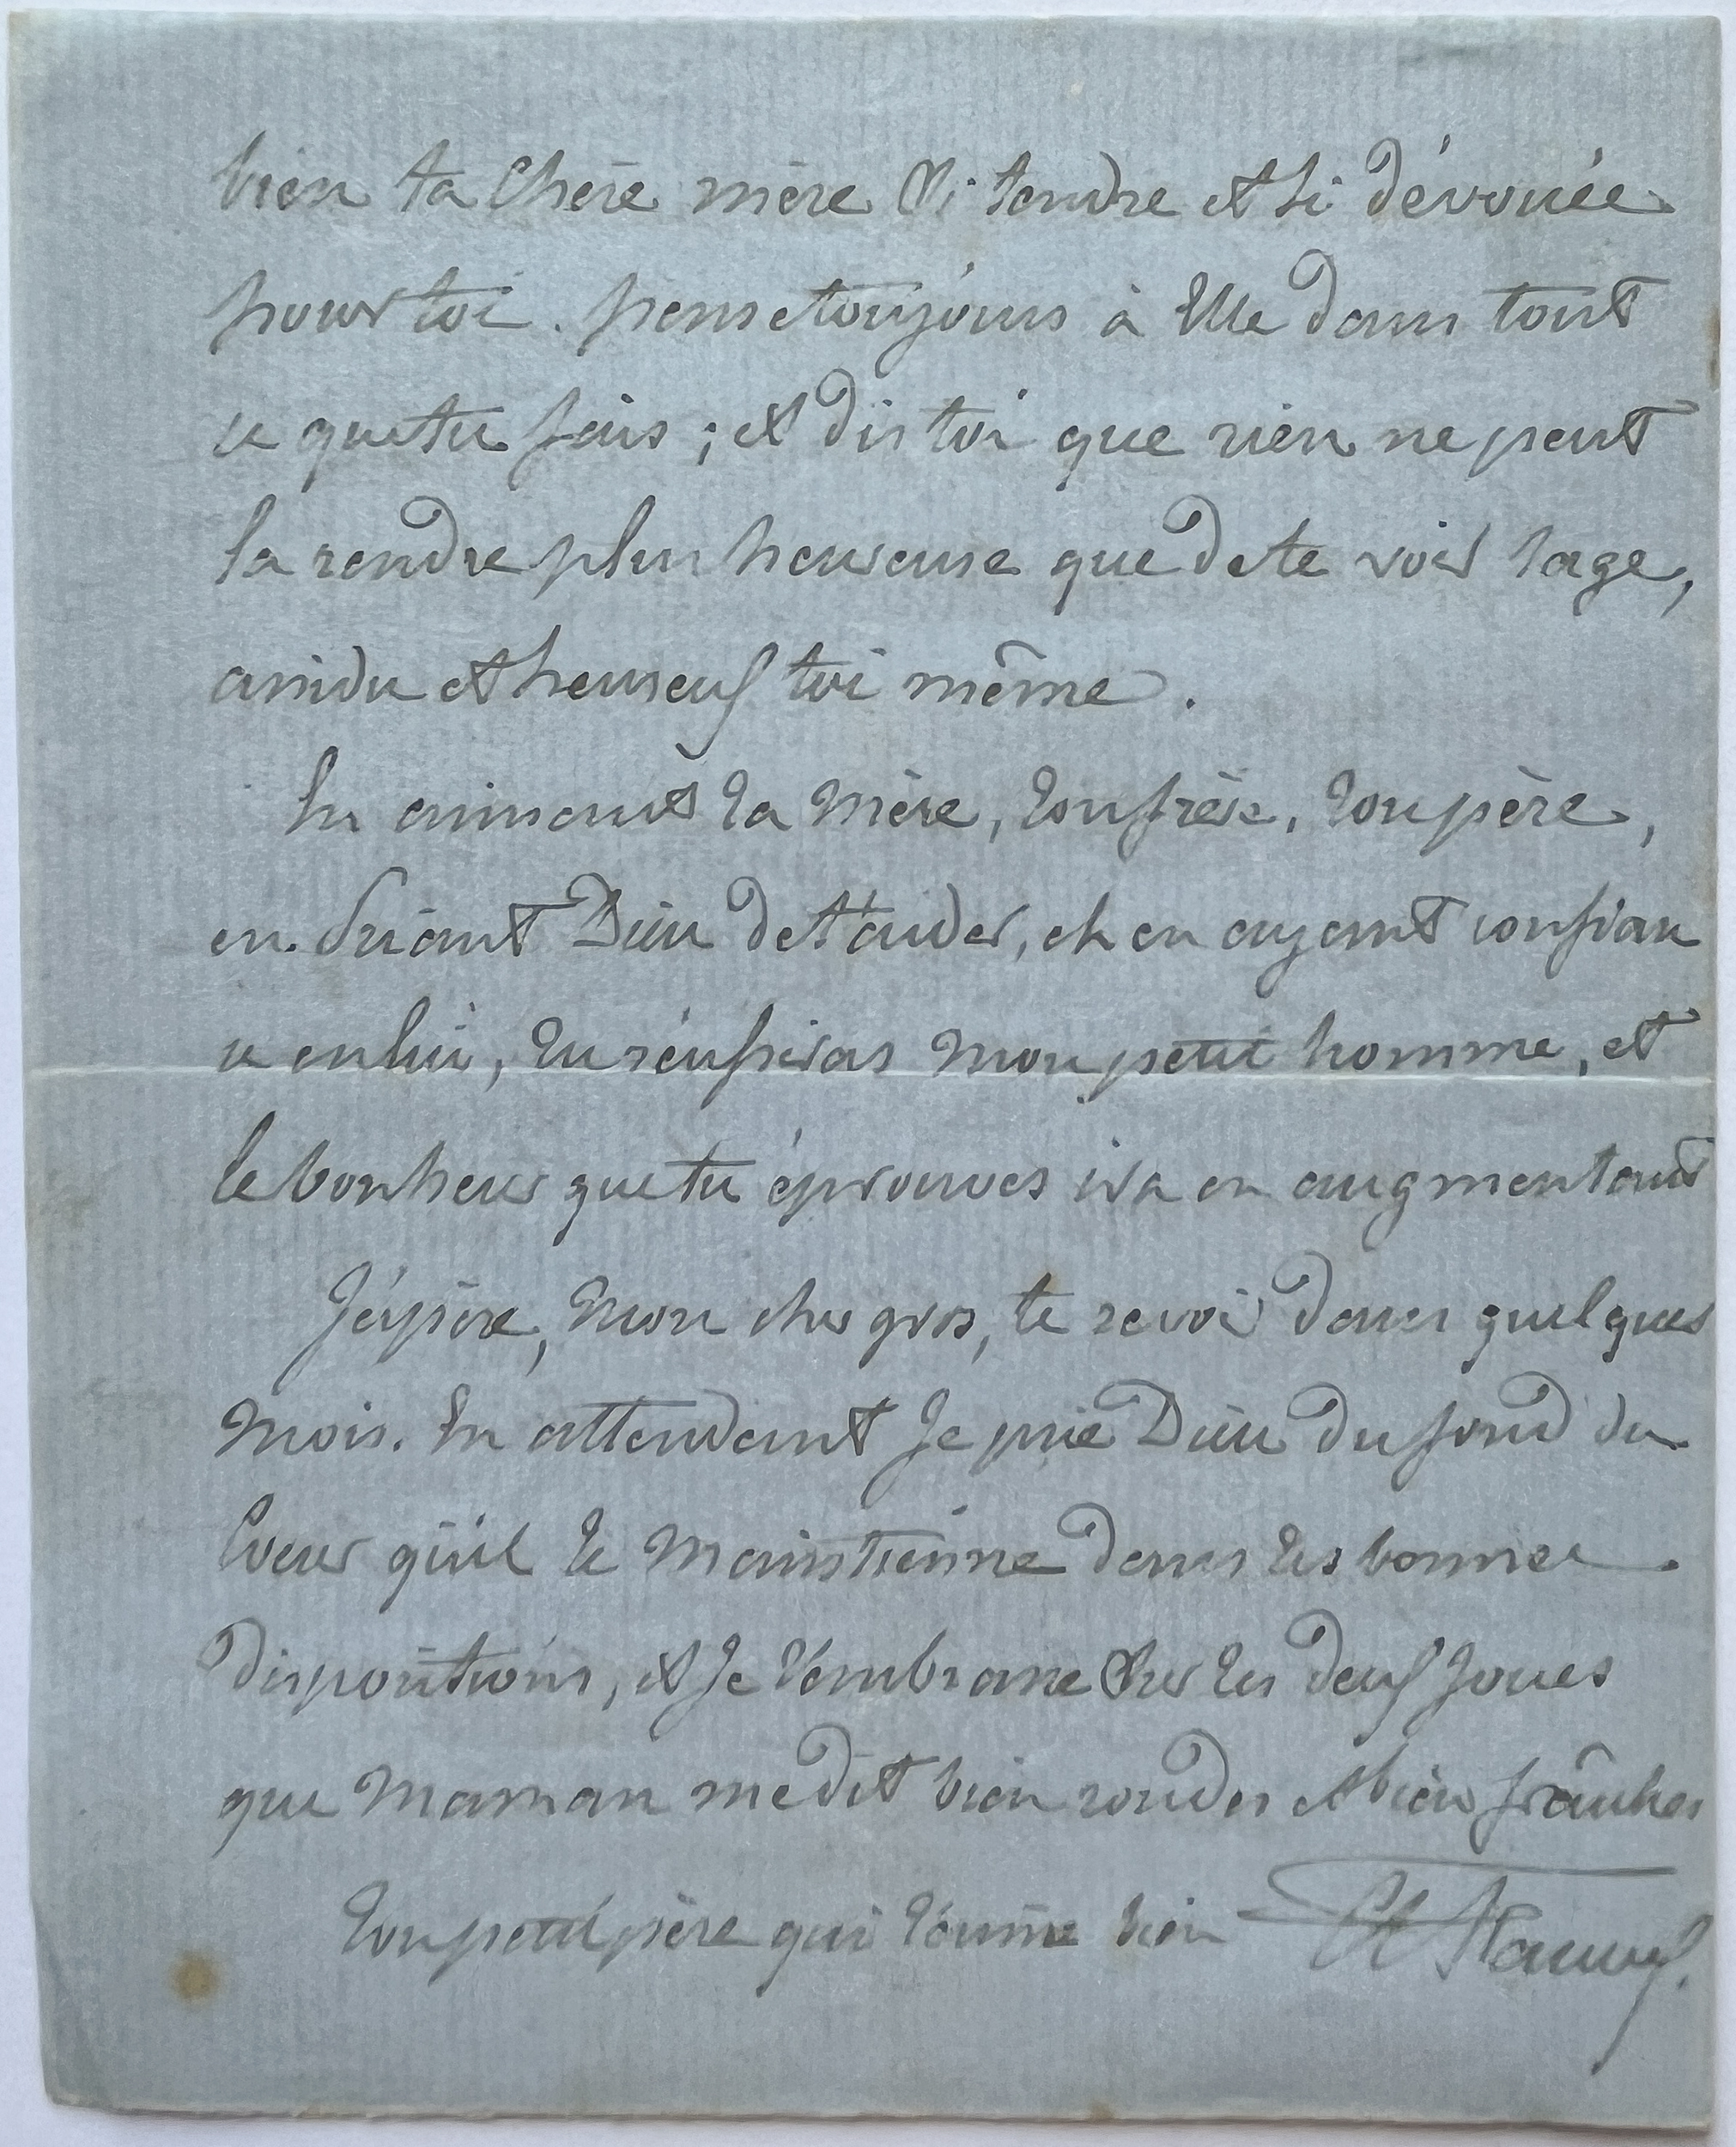 bien ta Chère mère Si tendre et si dévouée
pour toi. pense toujours à Elle dans tout
ce que tu fais ; et dis toi que rien ne peut
la rendre plus heureuse que de te voir sage,
assidu et heureux toi même.
En aimant ta Mère, ton frère, ton père,
en Priant Dieu de t'aider, et en ayant confian
ce en lui, tu réussiras mon petit homme, et
le bonheur que tu éprouves ira en augmentant
J'espère, mon cher gros, te revoir dans quelques
mois. En attendant Je prie Dieu du fond du
Coeur qu'il te maintienne dans tes bonnes
Dispositions, et Je t'embrasse Sur les deux Joues
que Maman me dit bien rondes et bien fraîches
ton petit père qui t'aime bien